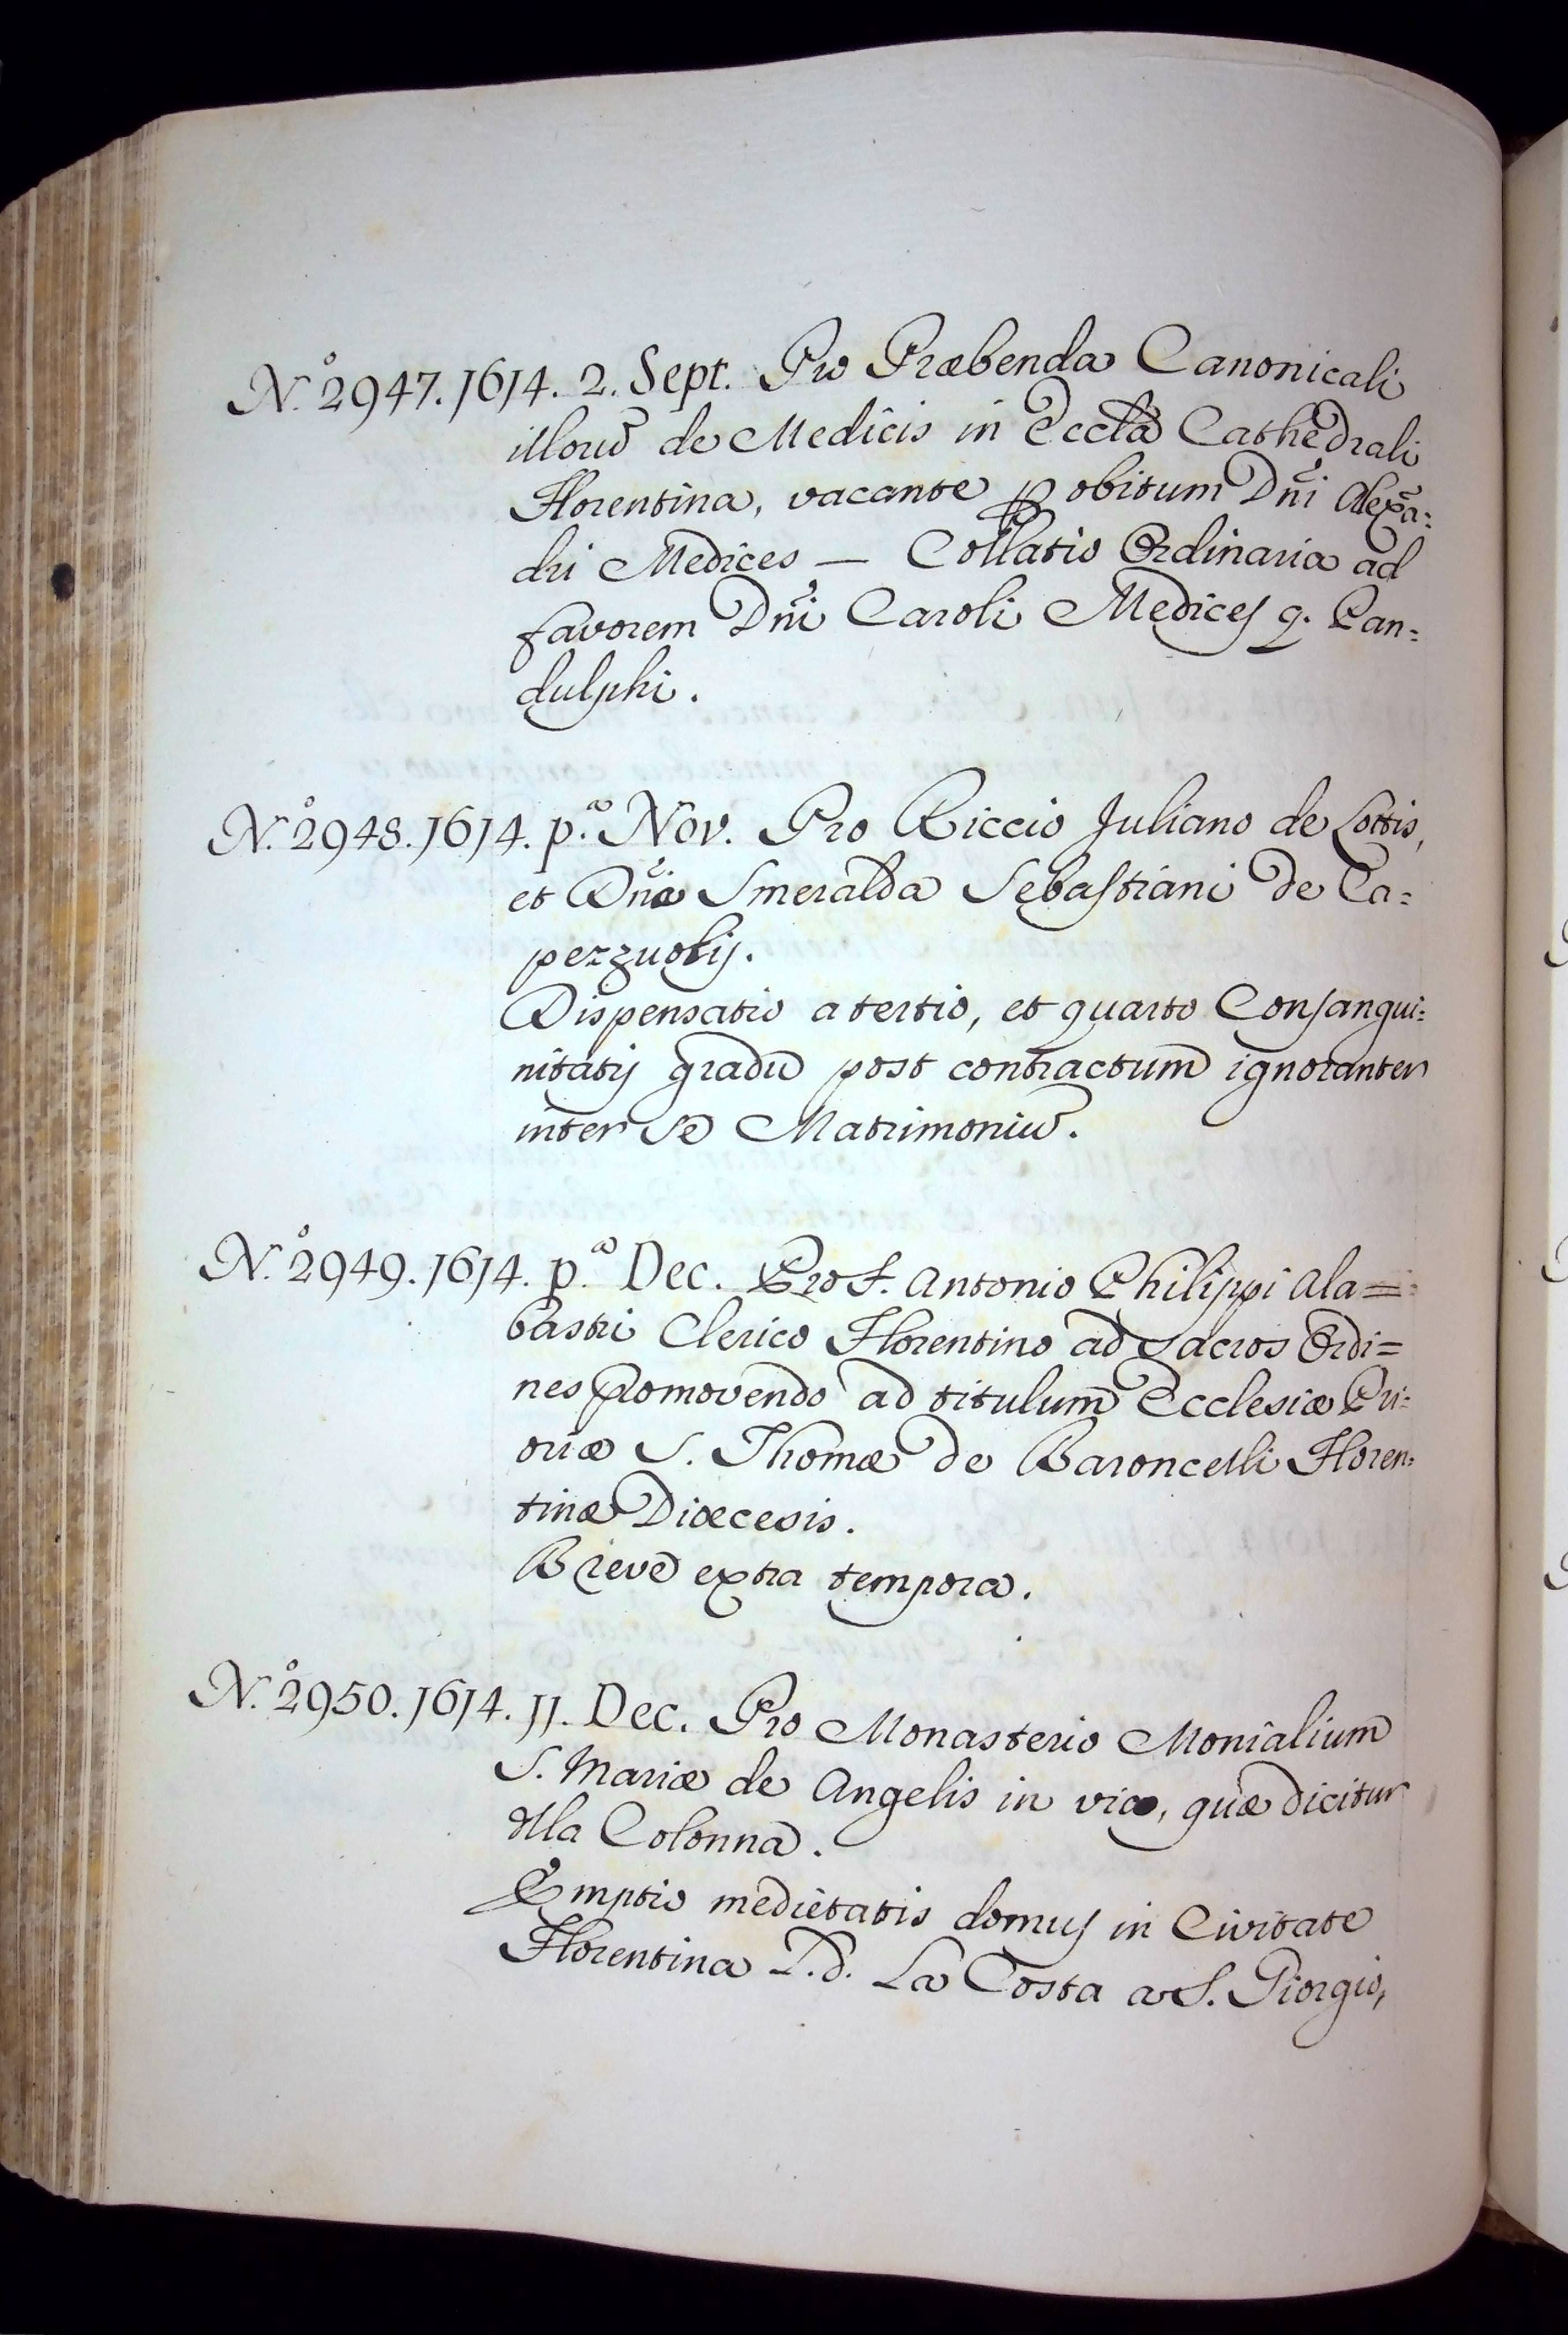 N.º 2947. 1614. 2. Sept. Pro Præbenda Canonicali
illorũ de Medicis in Eccl̃a Cathedrali
Florentina, vacante ꝑ obitum Dñi Alexã=
dri Medices — Collatio Ordinaria ad
favorem Dñi Caroli Medices q. Pan=
dulphi.
N.º 2948. 1614. p.ª Nov. Pro Riccio Juliano de Lottis,
et Dña Smeralda Sebastiani de Ca=
pezzuolis.
Dispensatio a tertio, et quarto Consangui=
nitatis gradu post contractum ignoranter
inter se Matrimoniũ.
N.º 2949. 1614. p.ª Dec. Pro S. Antonio Philippi Ala=
bastri Clerico Florentino ad Sacros Ordi=
nes promovendo ad titulum Ecclesiæ Pri=
oriæ S. Thomæ de Baroncelli Floren=
tinæ Diœcesis.
Breve extra tempora.
N.º 2950. 1614. 11. Dec. Pro Monasterio Monialium
S. Mariæ de Angelis in via, quæ dicitur
dlla Colonna.
Emptio medietatis domus in Civitate
Florentina L.d. La Costa a S. Giorgio,